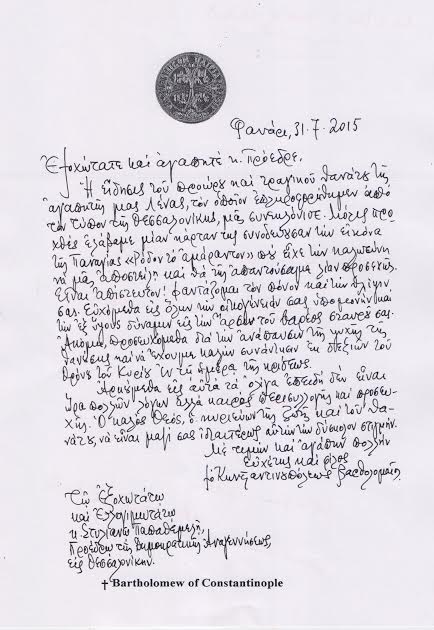 Φανάρι, 31.7.2015
Ἐξοχώτατε καί ἀγαπητέ κ. Πρόεδρε,
Ἡ εἴδησις τοῦ προώρου καί τραγικοῦ θανάτου τῆς
ἀγαπητῆς μας Λένας, τόν ὁποῖον ἐπληροφορήθημεν ἀπό
τόν τύπον τῆς Θεσσαλονίκης, μᾶς συνεκλόνισε. Μόλις προ
χθές ἐλάβομε μίαν κάρταν της συνοδεύουσαν τήν εἰκόνα
τῆς Παναγίας «Ρόδον τό ἀμάραντον» πού εἶχε τήν καλωσύνη
νά μᾶς ἀποστείλῃ καί θά τῆς ἀπαντούσαμε λίαν προσεχῶς.
Εἶναι ἀπίστευτον! Φανταζόμαι τόν πόνον καί τήν θλῖψιν
σας. Εὐχόμεθα εἰς ὅλην τήν οἰκογένειάν σας ὑπομονήν καί
τήν ἐξ ὕψους δύναμιν εἰς τήν ἄρσιν τοῦ βαρέος σταυροῦ σας.
Ἀκόμα, προσευχόμεθα διά τήν ἀνάπαυσιν τῆς ψυχῆς τῆς
καί νά ἔχουμε καλήν συνάντησιν ἐκ δεξιῶν τοῦ
θρόνου τοῦ Κυρίου ἐν τῇ ἡμέρᾳ τῆς κρίσεως.
Ἀρκούμεθα εἰς αὐτά τά ὀλίγα ἐπειδή δέν εἶναι
ὥρα πολλῶν λόγων ἀλλά καιρός περισυλλογῆς καί προσευ-
χῆς. Ὁ καλός Θεός, ὁ κυριεύων τῆς ζωῆς καί τοῦ θα-
νάτου, νά εἶναι μαζί σας ἰδιαιτέρως αὐτήν τήν δύσκολον στιγμήν.
Μέ τιμήν καί ἀγάπην πολλήν
Εὐχέτης καί φίλος
Κωνσταντινουπόλεως Βαρθολομαῖος
Τῷ Ἐξοχωτάτῳ
καί Ἐλλογιμωτάτῳ
κ. Στυλιανῷ Παπαθεμελῇ,
Προέδρῳ τῆς Δημοκρατικῆς Ἀναγεννήσεως,
εἰς Θεσσαλονίκην.
† Bartholomew of Constantinople